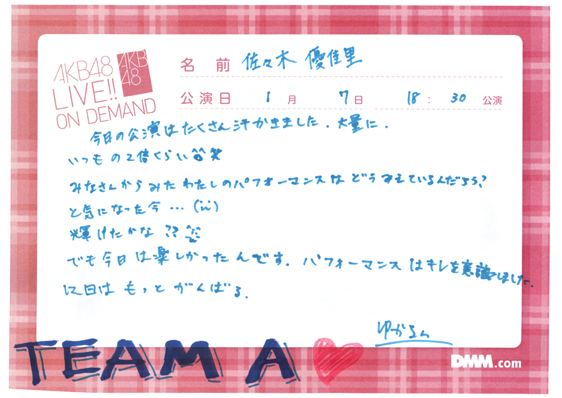 AKB48
LIVE!!
ON DEMAND
AKB
48
名前 佐々木 優佳里
公演日 1月 7日 18:30 公演
今日の公演はたくさん汗かきました.大量に.
いつもの2倍くらい 笑
みなさんからみたわたしのパフォーマンスはどうみえているんだろう?
と気になった今…
輝けたかな??
でも今日は楽しかったんです.パフォーマンスはキレを意識しました.
12日はもっとがんばる.
ゆかるん
TEAM A
DMM.com